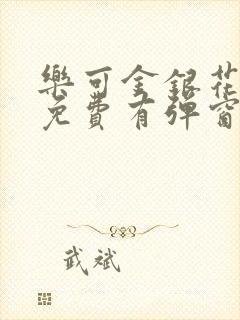 樂可金銀花
免費有彈窗
武斌